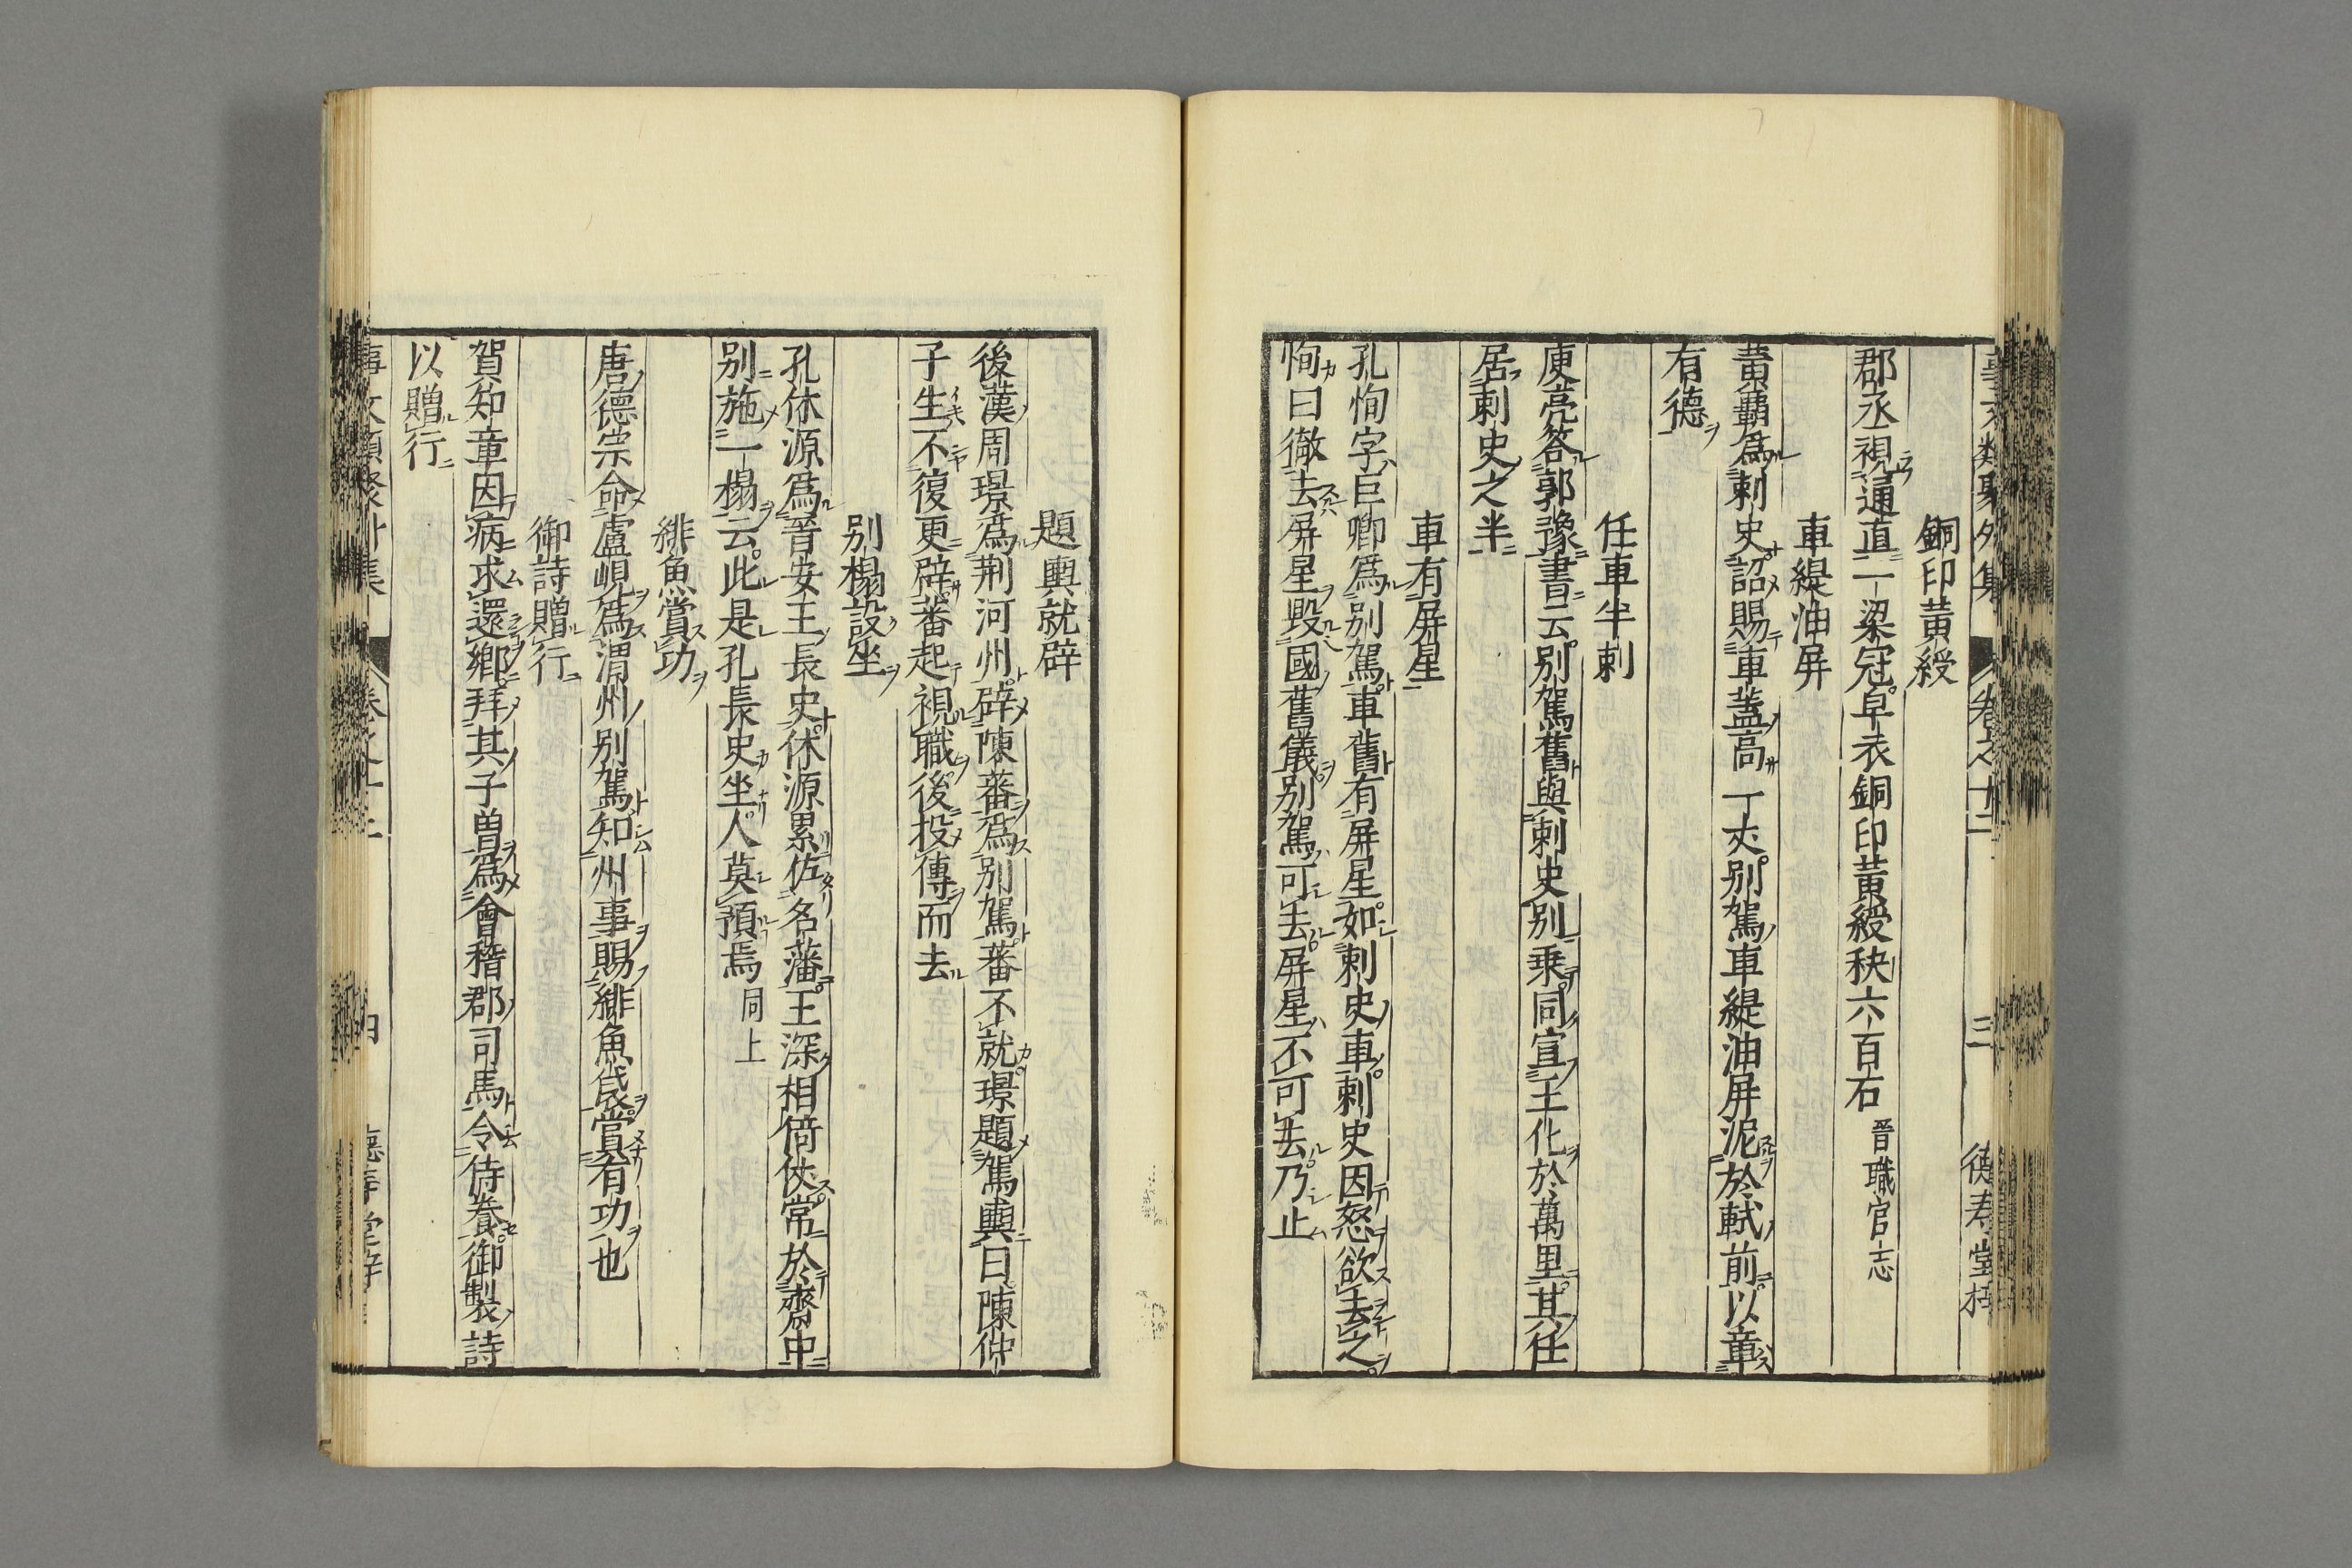 事文類聚外集 卷之十二 三 德寿堂梓
銅印黃綬
郡丞視通直一梁冠皁衣銅印黃綬秩六百石晉職官志
車緹油屏
黃霸爲刺史詔賜車盖高一丈别駕車緹油屏泥於軾前以章
有德
任車半刺
庾亮答郭豫書云别駕舊與刺史别乗同宣王化於萬里其任
居刺史之半
車有屏星
孔恂字巨卿爲别駕車舊有屏星如刺史車刺史因怒欲去之
恂曰徹去屏星毀國舊儀别駕可去屏星不可去乃止
題輿就辟
後漢周璟爲荆河州辟陳蕃爲别駕蕃不就璟題駕輿曰陳仲
子生不復更辟蕃起視職後投傳而去
别榻設坐
孔休源爲晉安王長史休源累佐名藩王深相倚仗常於齋中
别施一榻云此是孔長史坐人莫預焉同上
緋魚賞功
唐德宗命盧峴爲渭州别駕知州事賜緋魚袋賞有功也
御詩贈行
賀知章因病求還鄉拜其子曽爲會稽郡司馬令侍養御製詩
以贈行